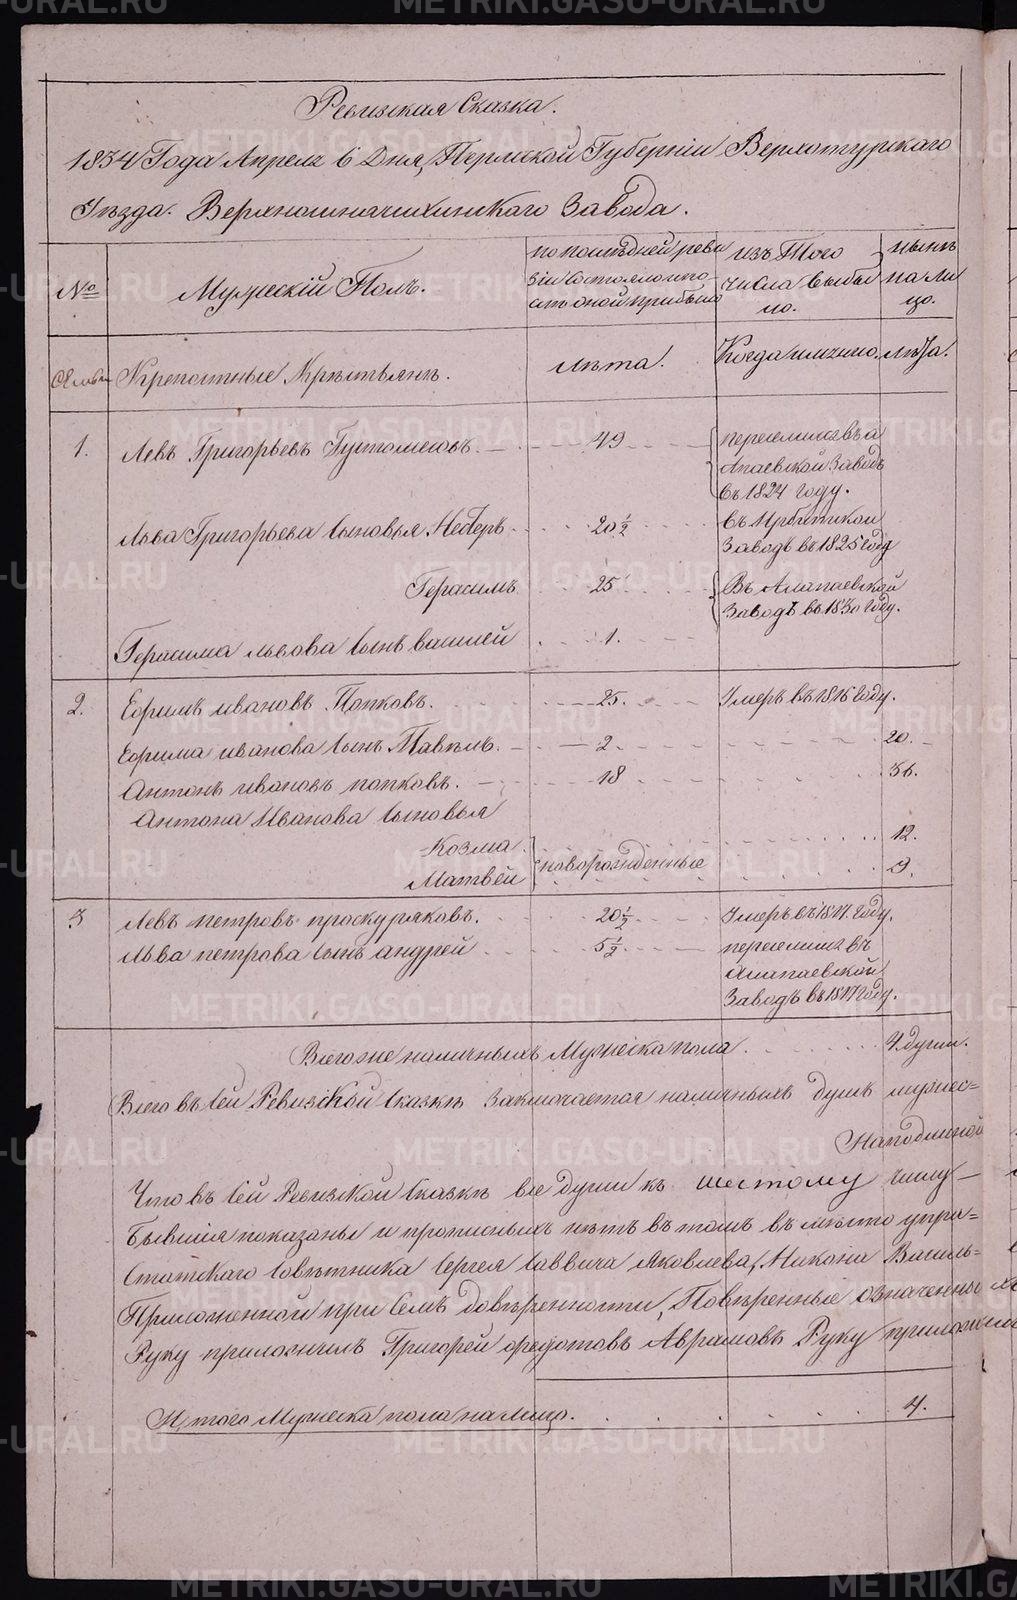 Ревизская Сказка.
1834 Года Апреля 6 Дня, Пермской Губерніи Верхотурскаго
Уѣзда. Верхнешначихинскаго Завода.
№
Мужескій Полъ.
по послѣдней реви
зіи состояло и по-
слѣ оной прибыло
изъ того
числа выбы
ло.
нынѣ
на ли
цо.
Семьи
Крепостные Крѣстьянѣ.
лѣта.
Когда имянно.
лѣта.
1.
Левъ Григорьевъ
49
переселился въ а
лапаевской Заводъ
въ 1824 году.
Льва Григорьева сыновья
20 1/2
въ Ирбитской
Заводъ въ 1825 году
Герасимъ
25
Въ Алапаевской
Заводъ въ 1830 году.
Герасима львова сынъ василей
1.
2.
Ефимъ ивановъ Попковъ.
25.
Умеръ въ 1816 году.
Ефима иванова сынъ Павелъ.
2.
20.
Антонъ ивановъ попковъ.
18
36.
Антона Иванова сыновья
Козма
12.
новорожденные
Матвей
9.
3
Левъ петровъ проскуряковъ.
20 1/2
Умеръ въ 1817. году.
Льва петрова сынъ андрей
5 1/2
переселился въ
Алапаевской
Заводъ въ 1817 году.
Всего же наличныхъ Мужеска пола
4 души.
Всего въ сей Ревизской сказкѣ Заключается наличныхъ душъ мужес=
На подлиной
Что въ сей Ревизской сказкѣ все души къ шестому числу
бывшія показаны и прописныхъ нѣтъ въ томъ въ мѣсто упра=
Статскаго совѣтника Сергея саввича Яковлева, Никона Василь=
Приложенной при семъ довѣренности, Повѣренные означенные
Руку приложилъ Григорей федотовъ Аврамовъ Руку приложилъ
И того Мужеска пола налицо.
4.
METRIKI.GASO-URAL.RU